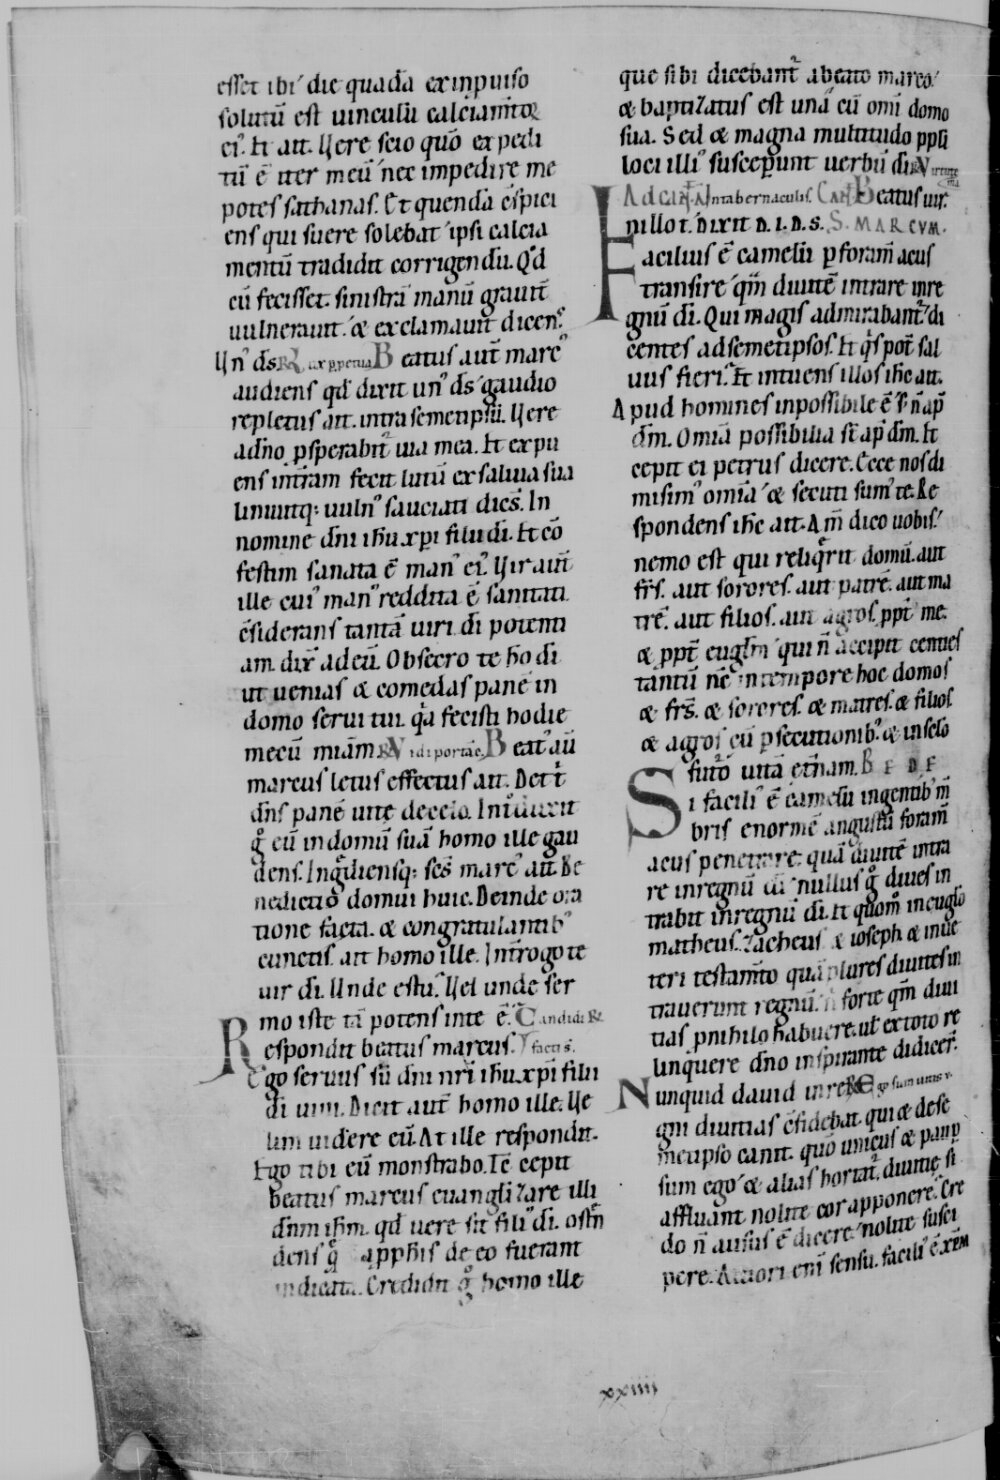 esset ibi die quadā ex inpuiso
solutū est uinculū calciamtoꝝ
ei᾽. Et ait. Uere scio quō expedi
tū ē iter meū nec impedire me
potes sathanas. Et quendā cspici
ens qui suere solebat ipsi calcia
mentū tradidit corrigendū. Qd
cū fecisset. sinistrā manū grauit̄
uulnerauit. & exclamauit dicens.
Un᾽ d̄s R Lux ppetua Beatus aut̄ marc᾽
audiens qd dixit un᾽ d̄s gaudio
repletus ait. intra semetipsū. Uere
ad n̄o psperabit᾽ uia mea. Et expu
ens int̄ram fecit lutū ex saliua sua
liniuitq; uuln᾽ sauciati dices̄. In
nomine dn̄i ihu xp̄i filii di. Et cō
festim sanata ē man᾽ ei᾽. Uir aut̄
ille cui᾽ man᾽ reddita ē sanitati
c̄siderans tantā uiri di potenti
am. dix̄ ad eū. Obsecro te ho di
ut uenias & comedas panē in
domo serui tui. qa fecisti hodie
mecū miām. R Vidi portāe. Beat᾽ aū
marcus letus effectus ait. Det t̄
dn̄s panē uite de celo. Introduxit
g° eū in domū suā homo ille gau
dens. Ingdiensq; scs̄ marc᾽ ait. Be
nedictio domui huic. Deinde ora
tione facta. & congratulantib᾽
cunctis. ait homo ille. Int̄rogo te
uir di. Unde es tu. Uel unde ser
mo iste tā potens in te ē. Candidi R
Respondit beatus marcus. facti s̄.
Ego seruus sū dn̄i nr̄i ihu xp̄i filii
di uiui. Dicit aut̄ homo ille. Ue
lim uidere eū. At ille respondit.
Ego tibi eū monstrabo. Tc̄ cepit
beatus marcus euangliZare illi
dn̄m ihm. qd uere sit fili᾽ di. ostn̄
dens q apphis de eo fuerant
indicata. Credidit g° homo ille
que sibi dicebant᾽ a beato marco.
& baptiZatus est unā cū omī domo
sua. Sed & magna multitudo ppli
loci illi᾽ susceperunt uerbū di. R Virtute
Ad cant̄ A In tabernaculis. Cap̄ Beatus uir. ma
In illo t. dixit D. I. D. S. S. MARCVM.
Facilius ē camelū p foram̄ acus
transire qm̄ diuitē intrare in re
gnū di. Qui magis admirabant᾽ di
centes ad semetipsos. Et qs pot̄ sal
uus fieri. Et intuens illos ihc ait.
Apud homines inpossibile ē s; n̄ ap
dm̄. Omia possibilia st̄ ap dm̄. Et
cepit ei petrus dicere. Ecce nos di
misim᾽ omīa & secuti sum᾽ te. Re
spondens ihc ait. Am̄ dico uobis.
nemo est qui reliqrit domū. aut
frs̄. aut sorores. aut patrē. aut ma
trē. aut filios. aut agros. ppt̄ me.
& ppt̄ euglm̄ qui n̄ accipit centies
tantū nc̄ in tempore hoc domos
& frs̄. & sorores. & matres. & filios
& agros cū psecutionib᾽. & in sclo
futuro uitā etn̄am. BEDE
Si facili᾽ ē camelū ingentib᾽ m̄
bris enormē angustū foram̄
acus penetrare. quā diuitē intra
re in regnū di. nullus g° diues in
trabit in regnū di. Et quom° in euglio
matheus. Zacheus & ioseph. & in ue
teri testamto quā plures diuites in
trauerunt regnū. n forte qm̄ diui
tias p nihilo habuere. ut᾽ ex toto re
linquere dn̄o inspirante didicer̄.
Nunquid dauid in re R Ego sum uitis v.
gni diuitias c̄fidebat. qui & de se
metipso canit. quō unicus & paup
sum ego & alias hortat᾽. diuitię si
affluant nolite cor apponere. Cre
do n̄ ausus ē dicere nolite susci
pere. Altiori enī sensu. facili᾽ ē xpm
xxiiii